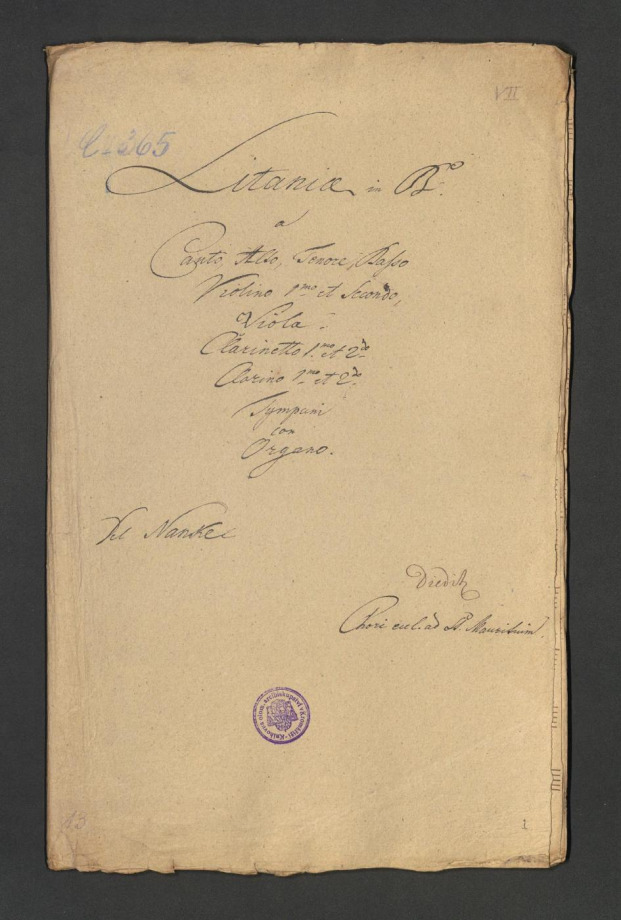 VII
365
Litaniæ in B.
a
Canto Alto, Tenore, Basso
Violino 1mo et Secondo,
Viola.
Clarinetto 1mo et 2do
Clarino 1mo et 2do
Tympani
con
Organo.
Del Nanke
Chori eccl. ad St. Mauritium.
13
1